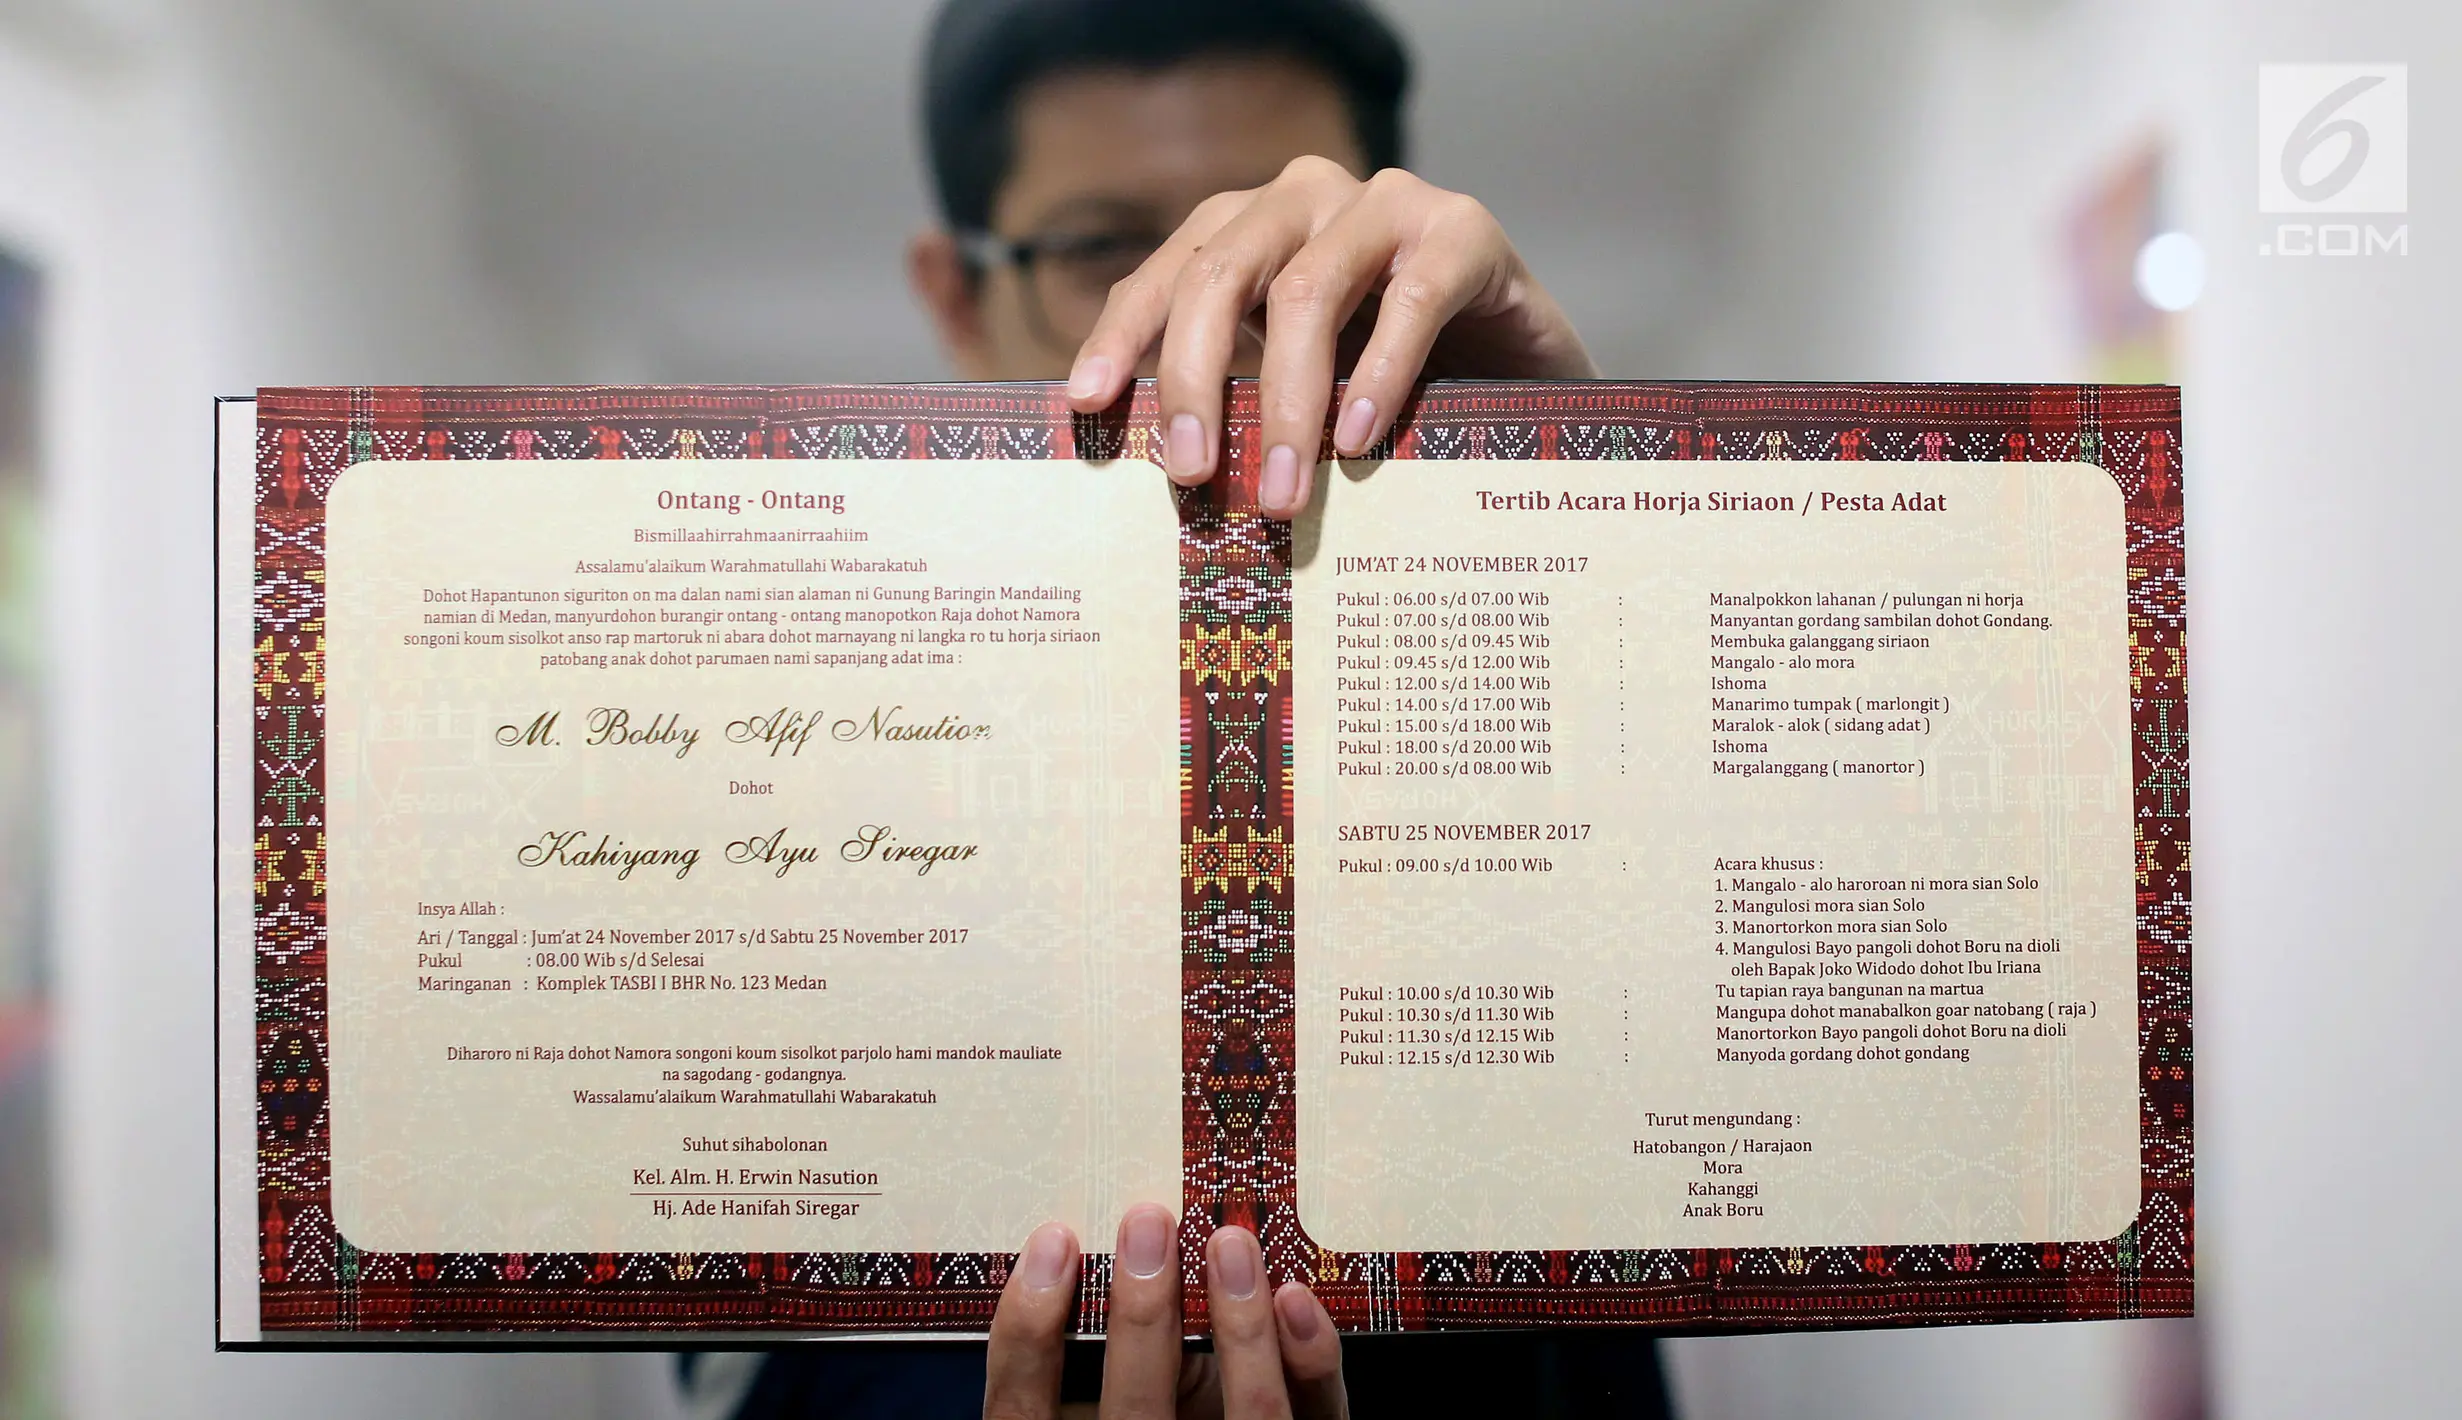 6
.COM
Ontang - Ontang
Bismillaahirrahmaanirraahiim
Assalamu'alaikum Warahmatullahi Wabarakatuh
Dohot Hapantunon siguriton on ma dalan nami sian alaman ni Gunung Baringin Mandailing
namian di Medan, manyurdohon burangir ontang - ontang manopotkon Raja dohot Namora
songoni koum sisolkot anso rap martoruk ni abara dohot marnayang ni langka ro tu horja siriaon
patobang anak dohot parumaen nami sapanjang adat ima :
M. Bobby Afif Nasution
Dohot
Kahiyang Ayu Siregar
Insya Allah :
Ari / Tanggal : Jum'at 24 November 2017 s/d Sabtu 25 November 2017
Pukul : 08.00 Wib s/d Selesai
Maringanan : Komplek TASBI I BHR No. 123 Medan
Diharoro ni Raja dohot Namora songoni koum sisolkot parjolo hami mandok mauliate
na sagodang - godangnya.
Wassalamu'alaikum Warahmatullahi Wabarakatuh
Suhut sihabolonan
Kel. Alm. H. Erwin Nasution
Hj. Ade Hanifah Siregar
Tertib Acara Horja Siriaon / Pesta Adat
JUM'AT 24 NOVEMBER 2017
Pukul : 06.00 s/d 07.00 Wib : Manalpokkon lahanan / pulungan ni horja
Pukul : 07.00 s/d 08.00 Wib : Manyantan gordang sambilan dohot Gondang.
Pukul : 08.00 s/d 09.45 Wib : Membuka galanggang siriaon
Pukul : 09.45 s/d 12.00 Wib : Mangalo - alo mora
Pukul : 12.00 s/d 14.00 Wib : Ishoma
Pukul : 14.00 s/d 17.00 Wib : Manarimo tumpak ( marlongit )
Pukul : 15.00 s/d 18.00 Wib : Maralok - alok ( sidang adat )
Pukul : 18.00 s/d 20.00 Wib : Ishoma
Pukul : 20.00 s/d 08.00 Wib : Margalanggang ( manortor )
SABTU 25 NOVEMBER 2017
Pukul : 09.00 s/d 10.00 Wib : Acara khusus :
1. Mangalo - alo haroroan ni mora sian Solo
2. Mangulosi mora sian Solo
3. Manortorkon mora sian Solo
4. Mangulosi Bayo pangoli dohot Boru na dioli
oleh Bapak Joko Widodo dohot Ibu Iriana
Pukul : 10.00 s/d 10.30 Wib : Tu tapian raya bangunan na martua
Pukul : 10.30 s/d 11.30 Wib : Mangupa dohot manabalkon goar natobang ( raja )
Pukul : 11.30 s/d 12.15 Wib : Manortorkon Bayo pangoli dohot Boru na dioli
Pukul : 12.15 s/d 12.30 Wib : Manyoda gordang dohot gondang
Turut mengundang :
Hatobangon / Harajaon
Mora
Kahanggi
Anak Boru